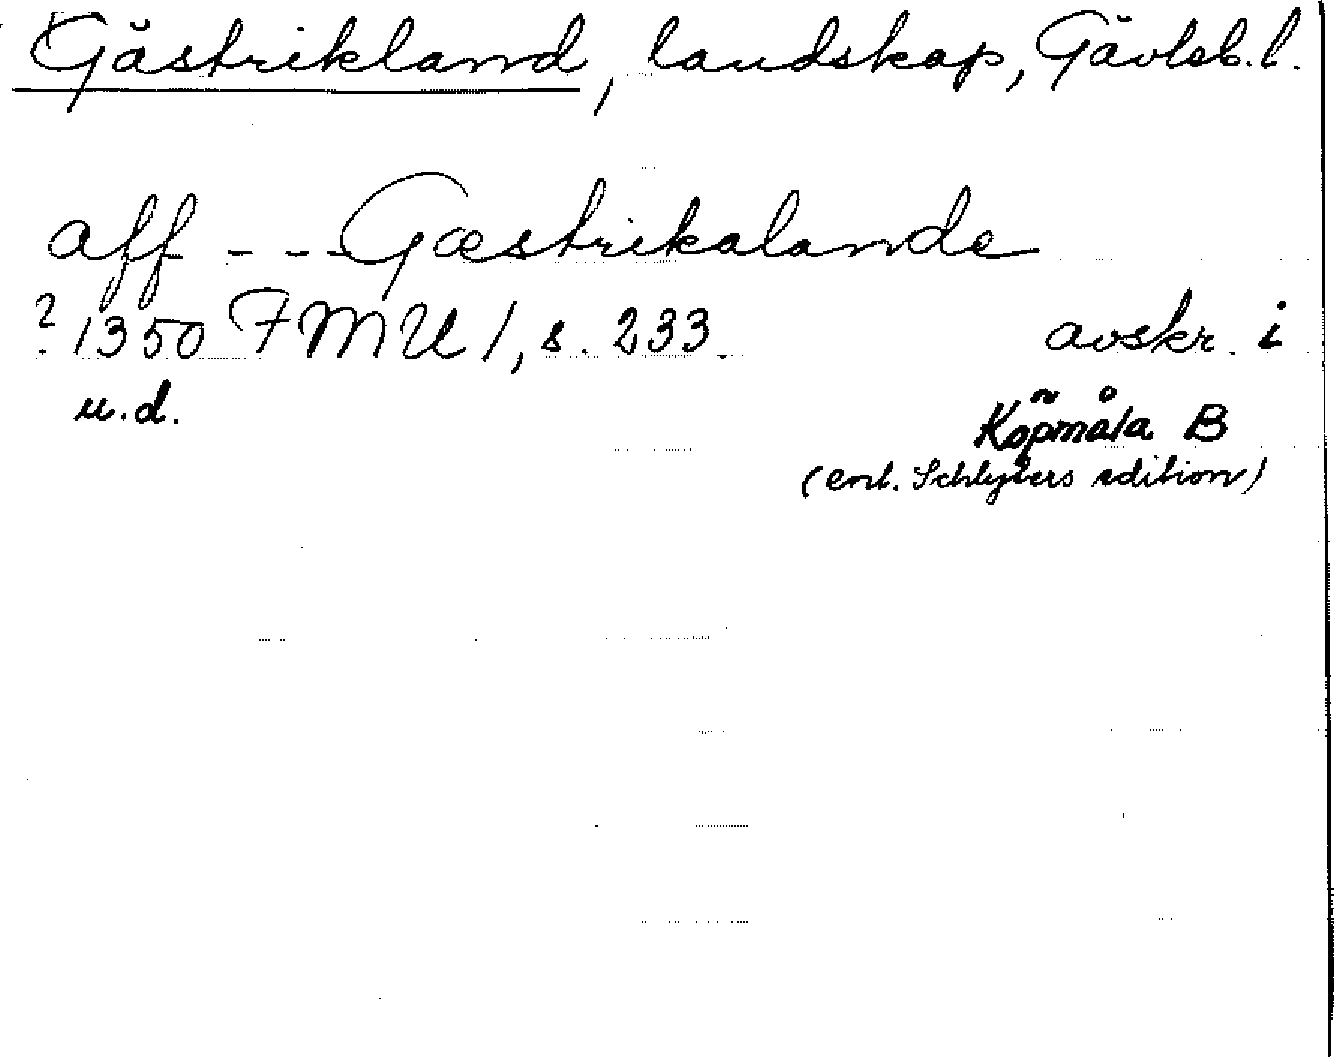 Gästrikland, landskap, Gävleb. l.
aff - - - Gæstrikalande
? 1350 FMU 1, s. 233 avskr. i
u.d. Köpmåla B
(enl. Schlyters edition)